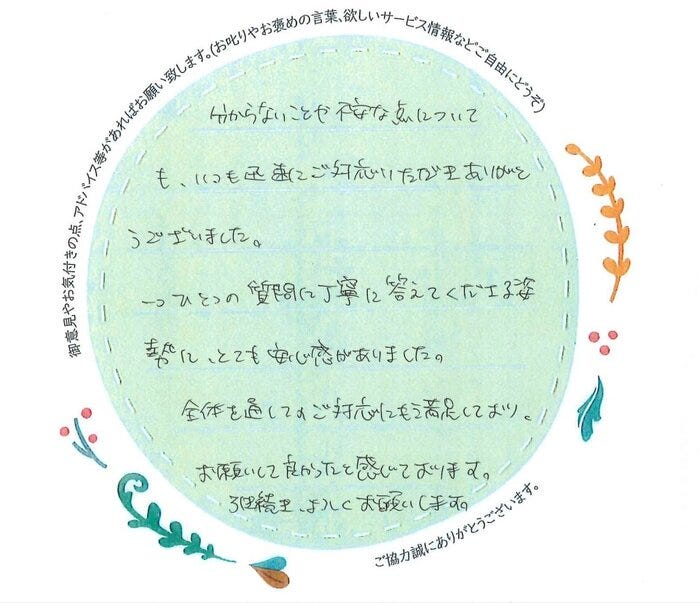 御意見やお気付きの点、アドバイス等があればお願い致します。(お叱りやお褒めの言葉、欲しいサービス情報などご自由にどうぞ)
分からないことや不安な点について
も、いつも迅速にご対応いただきありがと
うございました。
一つひとつの質問に丁寧に答えてくださる姿
勢に、とても安心感がありました。
全体を通してのご対応にも満足しており、
お願いして良かったと感じております。
引き続き、よろしくお願いします。
ご協力誠にありがとうございます。